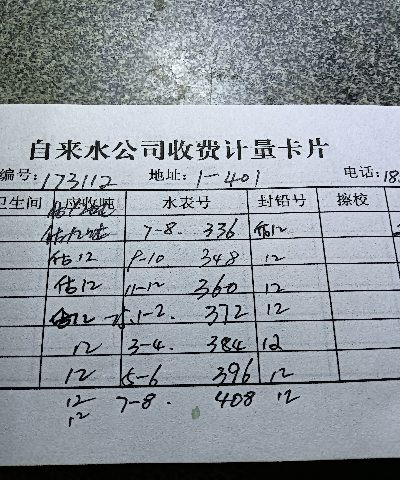 自来水公司收费计量卡片
编号: 173112 地址: 1-401 电话: 18
卫生间 应收吨 水表号 封铅号 擦校
估12吨 7-8. 336 估12
估12 9-10 348 12
估12 11-12 360 12
估12 25.1-2. 372 12
12 3-4. 384 12
12 5-6 396 12
12 7-8. 408 12
12